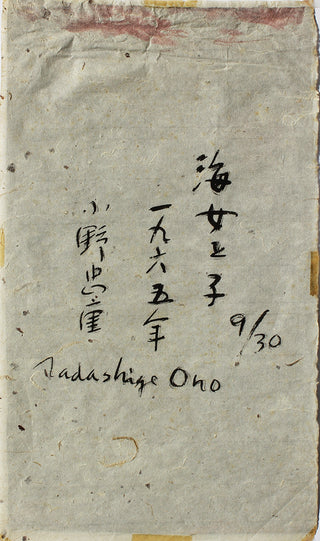 海女と子
一九六五年
小野忠重
9/30
Tadashige Ono